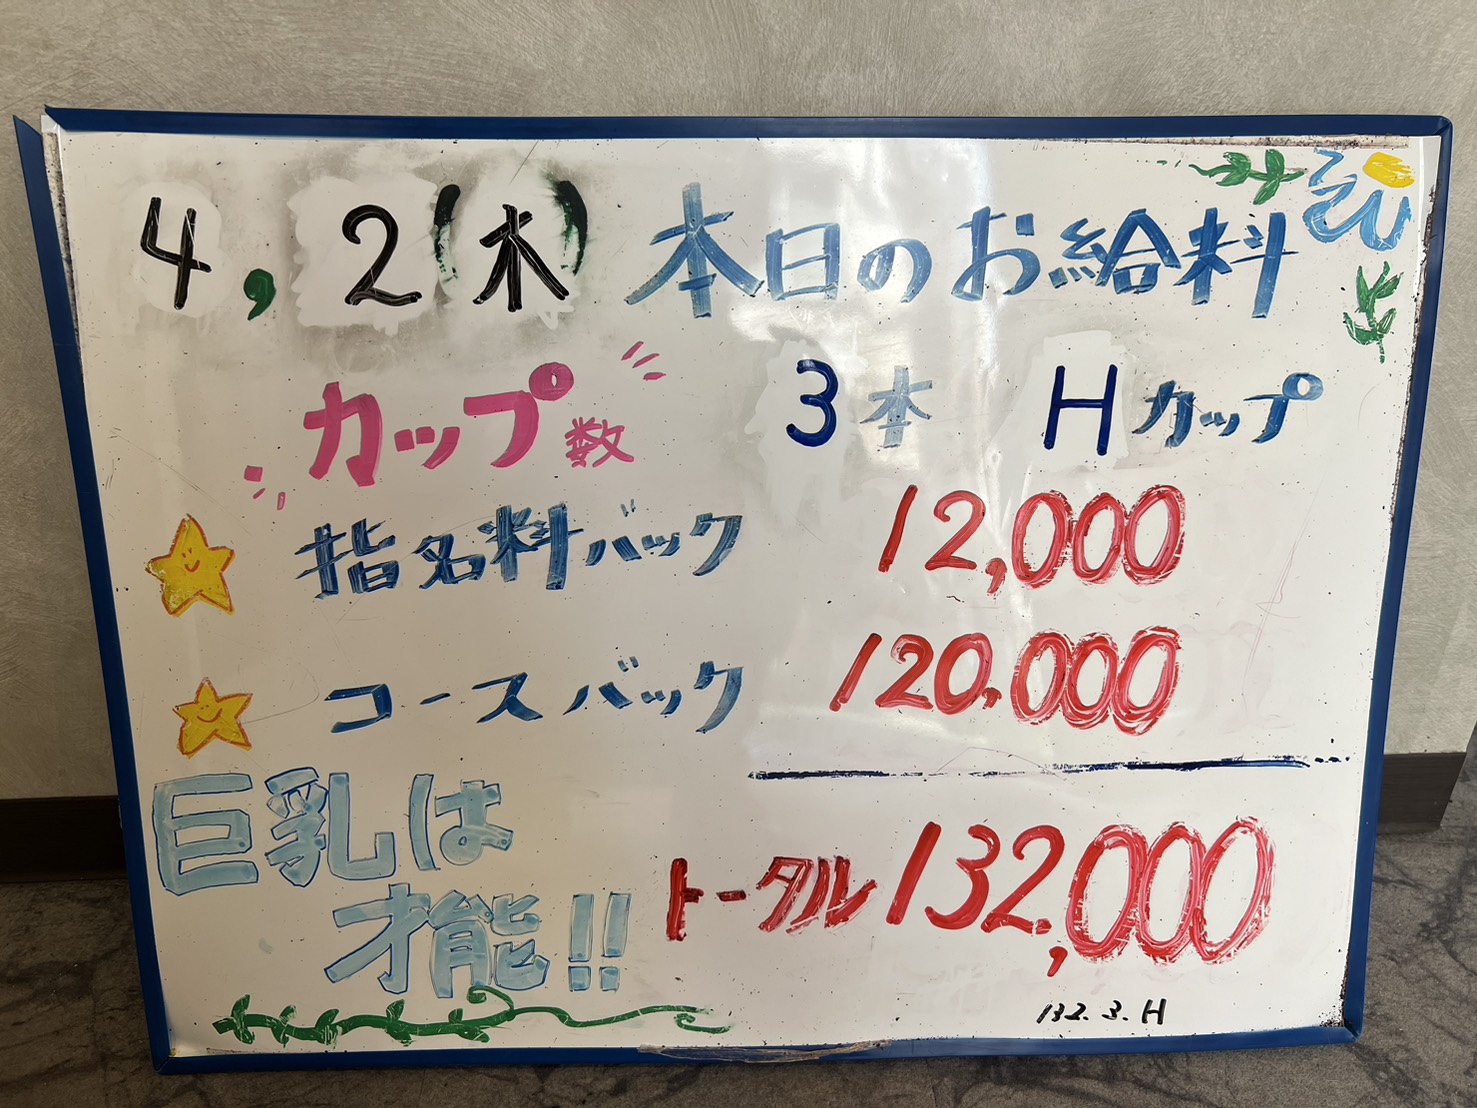 4,2(木) 本日のお給料
カップ数 3本 Hカップ
指名料バック 12,000
コースバック 120,000
巨乳は
才能!!
トータル 132,000
132.3.H